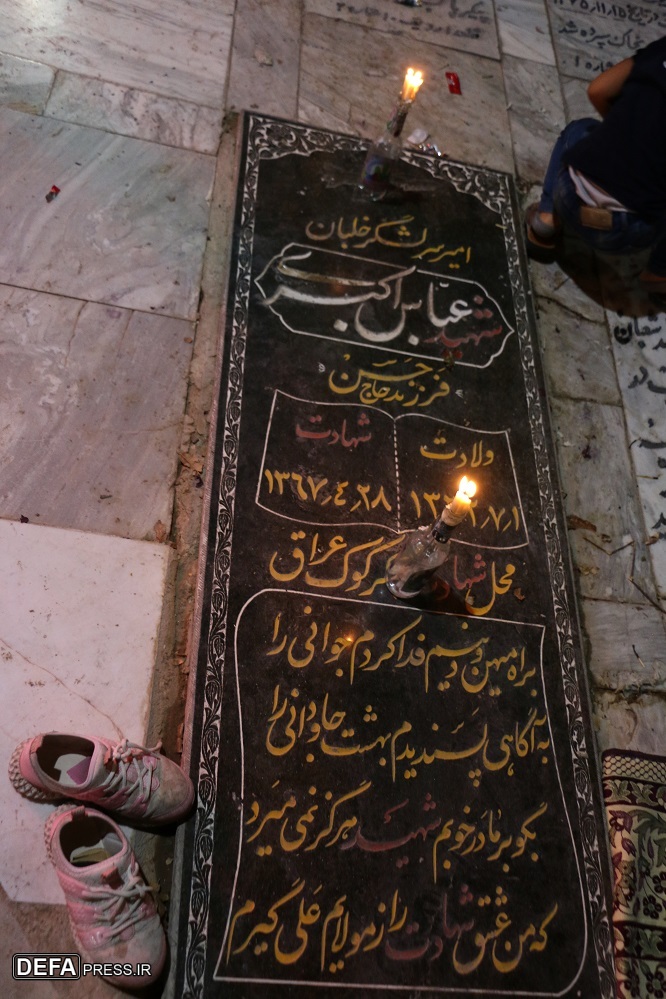 امیر سرلشگر خلبان
شهید عباس اکبری
فرزند حاج حسن
ولادت
شهادت
۱۳۶۷٫۴٫۲۸
محل شهادت کرکوک عراق
براه میهن و دینم فدا کردم جوانی را
به آگاهی پسندیدم بهشت جاودانی را
بگو بر مادر خوبم شهید هرگز نمی میرد
که من عشق شهادت را ز مولایم علی گیرم
DEFAPRESS.IR